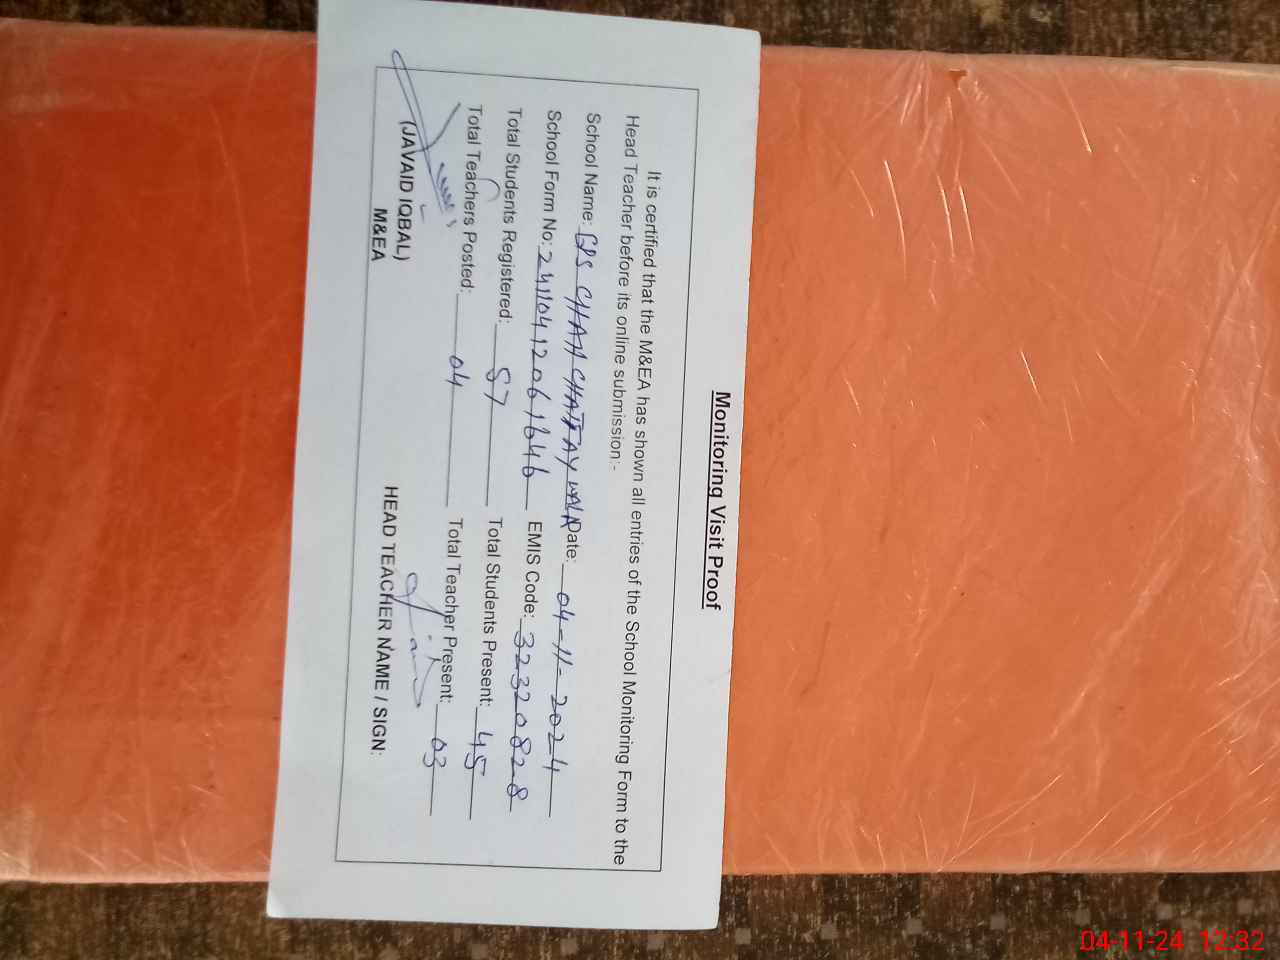 Monitoring Visit Proof
It is certified that the M&EA has shown all entries of the School Monitoring Form to the
Head Teacher before its online submission:-
School Name: GPS CHAH CHATTAY WALA Date: 04-11-2024
School Form No: 24110412061646 EMIS Code: 32320828
Total Students Registered: 57 Total Students Present: 45
Total Teachers Posted: 04 Total Teacher Present: 03
(JAVAID IQBAL)
M&EA
HEAD TEACHER NAME / SIGN:
04-11-24 12:32